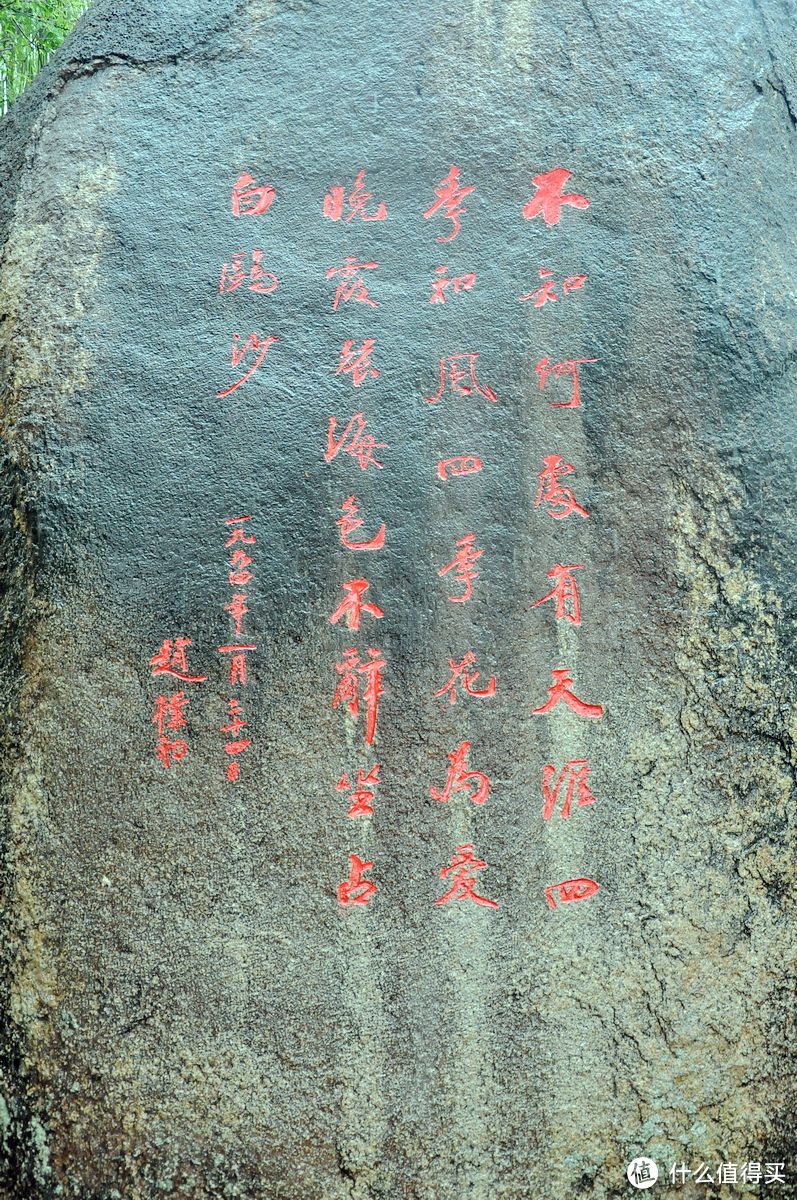 不知何處有天涯四
季和風四季花為爱
晚霞餐海色不辭坐占
白鷗沙
一九九四年一月二十四日
趙樸初
值 什么值得买